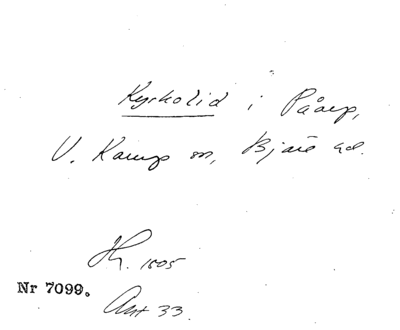 Kyrkolid i Påarp,
V. Karup sn, Bjäre hd.
1505
Nr 7099.
Ant 33.